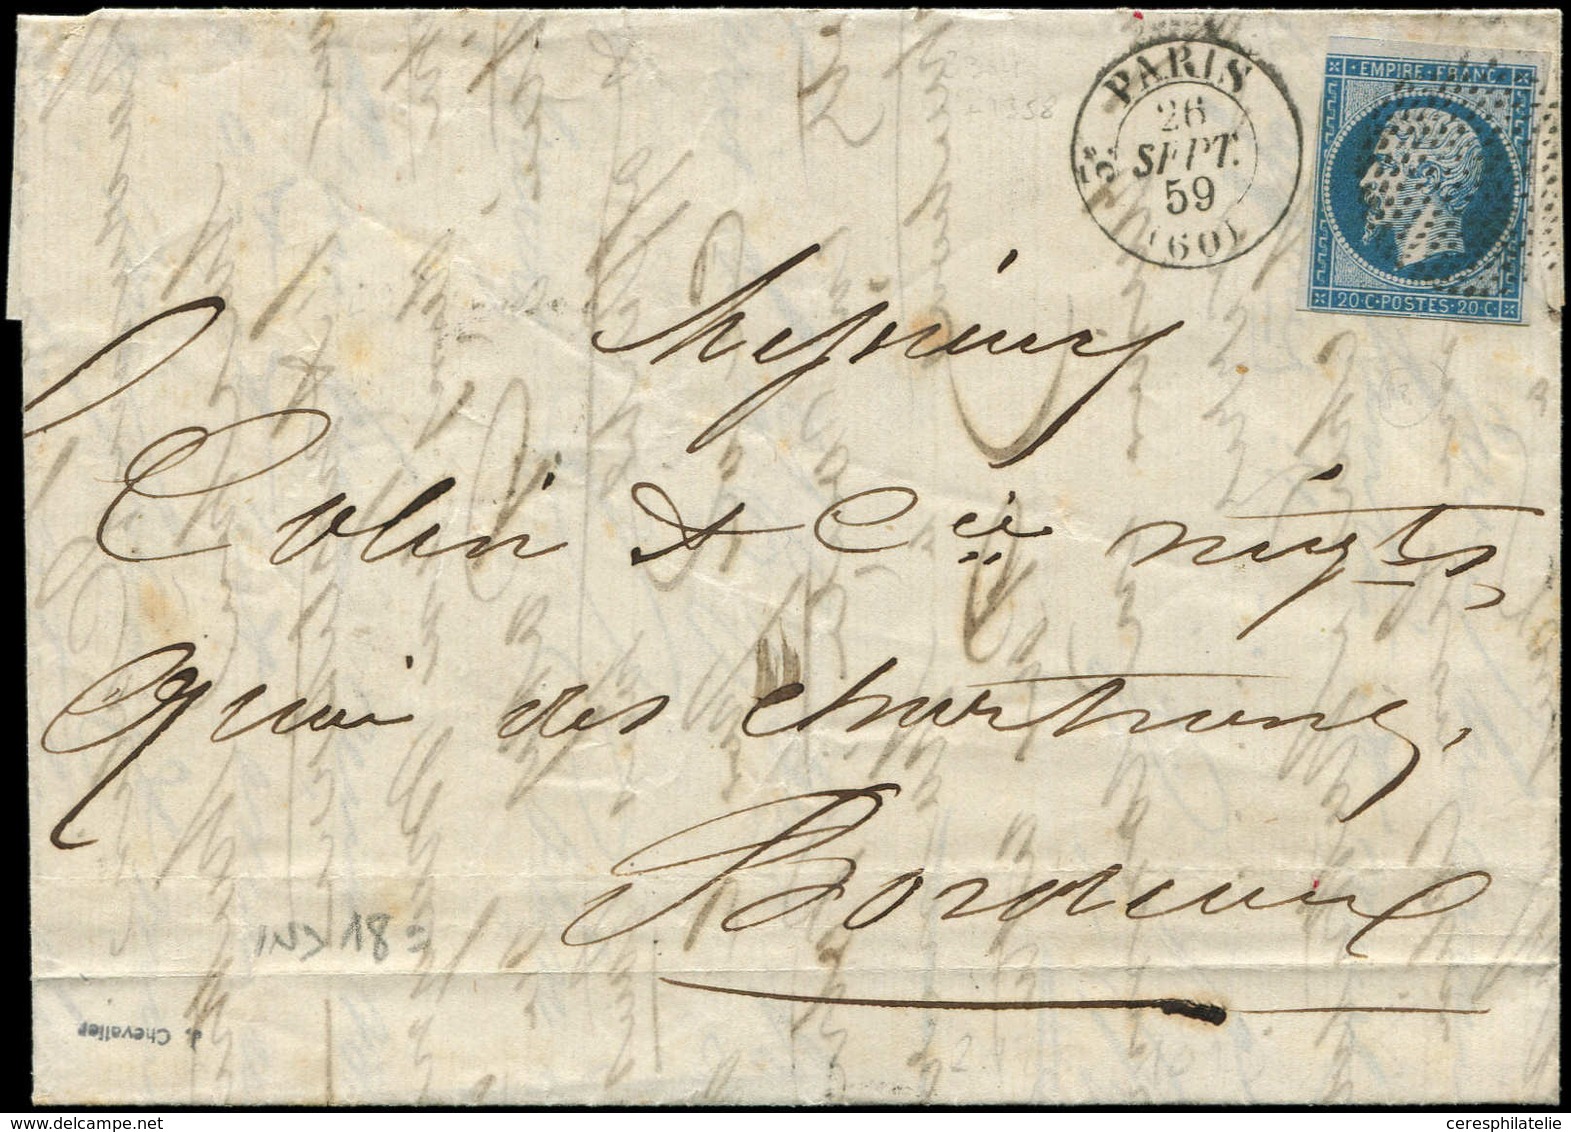 PARIS
26
SEPT.
59
(60)
EMPIRE FRANC
20·C·POSTES·20·C
Messieurs
Colin & Cie négts
quai des chartrons,
Bordeaux
J. Chevalier
ceresphilatelie